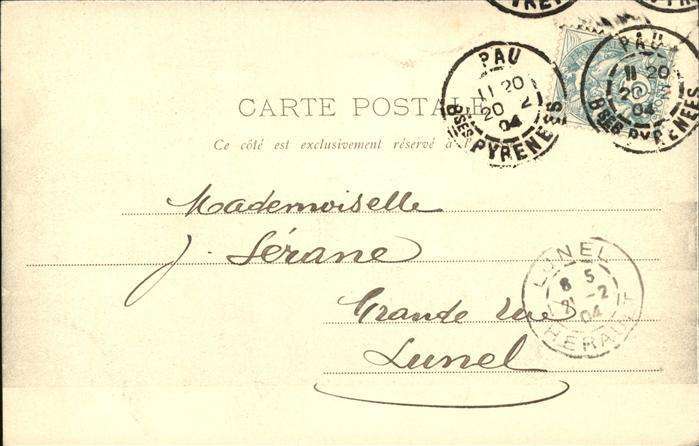 PAU
11 20
20 2
04
Bses PYRENEES
PAU
11 20
20 2
04
Bses PYRENEES
CARTE POSTALE
Ce côté est exclusivement réservé à l'
Mademoiselle
J. Sérane
Grande rue
Lunel
LUNEL
8 5
21 -2
04
HERAULT